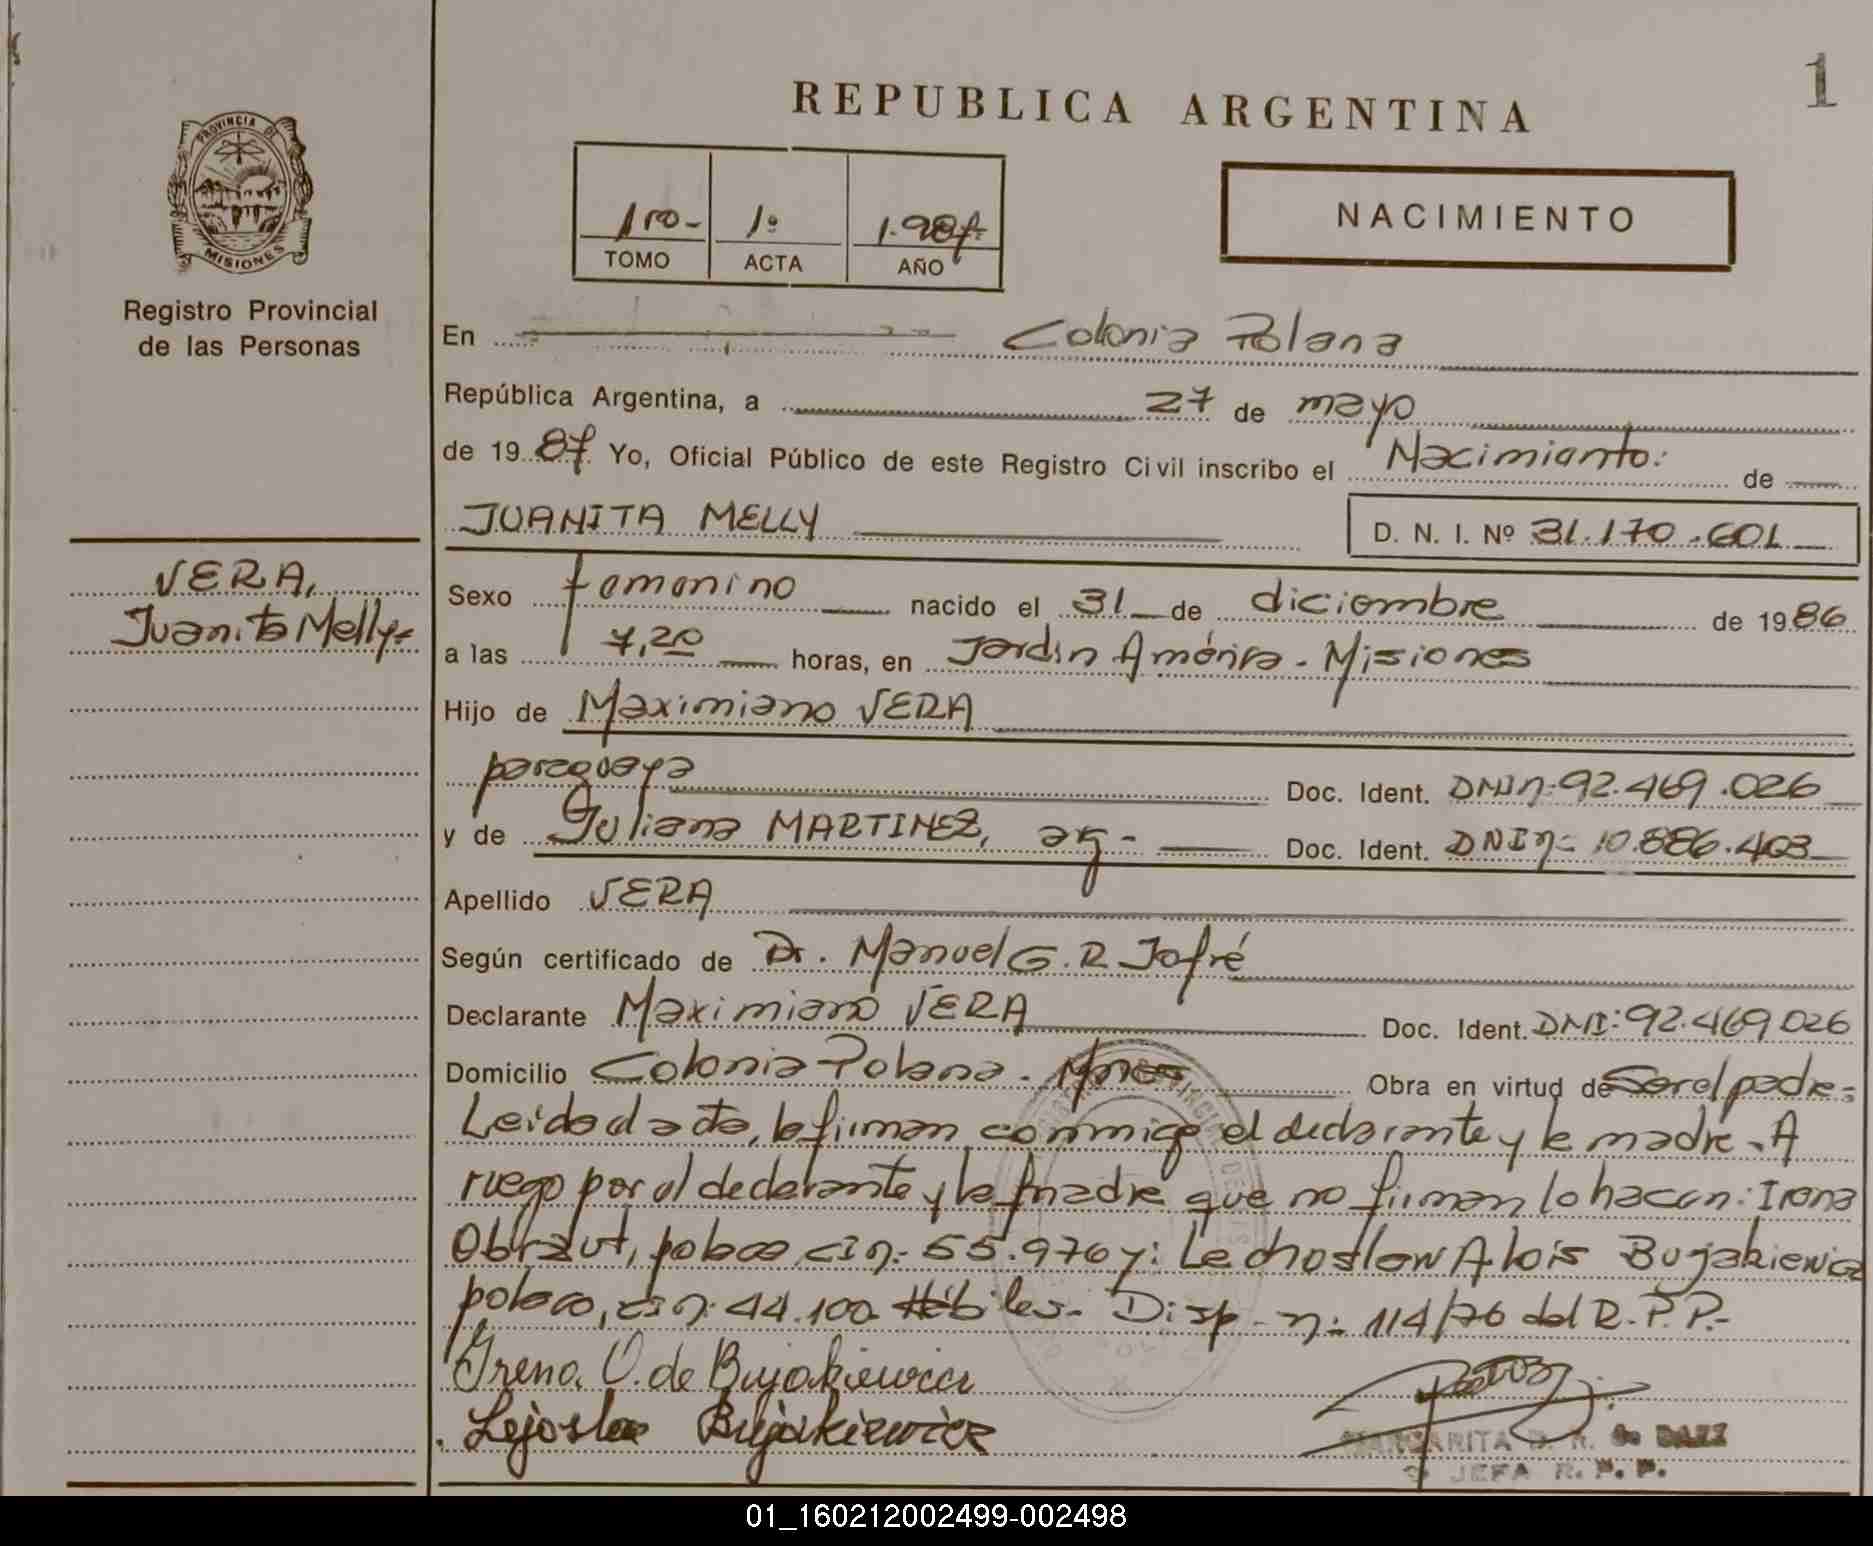 1
REPUBLICA ARGENTINA
PROVINCIA DE
MISIONES
Registro Provincial
de las Personas
1ro- 1º 1.987-
TOMO ACTA AÑO
NACIMIENTO
En Colonia Polana
República Argentina, a 27 de mayo
de 19 87 Yo, Oficial Público de este Registro Civil inscribo el Nacimiento: de
JUANITA MELLY D. N. I. Nº 31.170.601
VERA,
Juanita Melly-
Sexo femenino nacido el 31 de diciembre de 19 86
a las 7,20 horas, en Jardín América - Misiones
Hijo de Maximiano VERA
paraguaya Doc. Ident. DNI n: 92.469.026
y de Juliana MARTINEZ, arg- Doc. Ident. DNI n= 10.886.403
Apellido VERA
Según certificado de Dr. Manuel G. R Jofré
Declarante Maximiano VERA Doc. Ident. DNI: 92.469026
Domicilio Colonia Polana. Mnes Obra en virtud de Ser el padre=
Leida el acta, la firman conmigo el declarante y la madre. A
ruego por el declarante y la madre que no firman lo hacen: Irena
Obrzut, polaca, CI n: 55.976 y: Lechoslaw Alois Bujakiewicz
polaco, CI n: 44.100 Hábiles- Disp. n: 114/76 del R.P.P.-
Irena O. de Bujakiewicz
Bujakiewicz
MARGARITA D. R. de DAZZ
JEFA R. P. P.
01_160212002499-002498